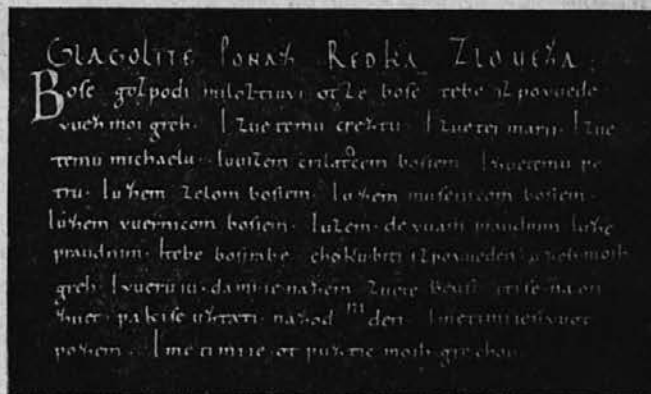 GLAGOLITE PONAZ REDKA ZLOUEZA:
Bose gozpodi miloztiuvi otze bose tebe izpovuede
vuez moi greh. I zuetemu creztu. I zuetei marii. I zue
temu michaelu. Iuuizem crilatcem bosiem. I zuetemu pe
tru. Iuzem zelom bosiem. Iuzem musenicom bosiem.
Iuzem vuernicom bosiem. Iuzem devuam praudnim. Iuze
praudnim. Itebe bosirabe. choku biti izpovueden. uzeh moih
greh. I vueruiu. da mi ie nazem zuete beusi. iti se na on
zuet. paki se uztati. nazodni den. Imeti mi ie sivuot
pozem. Imeti mi ie ot puztic moih grechou.